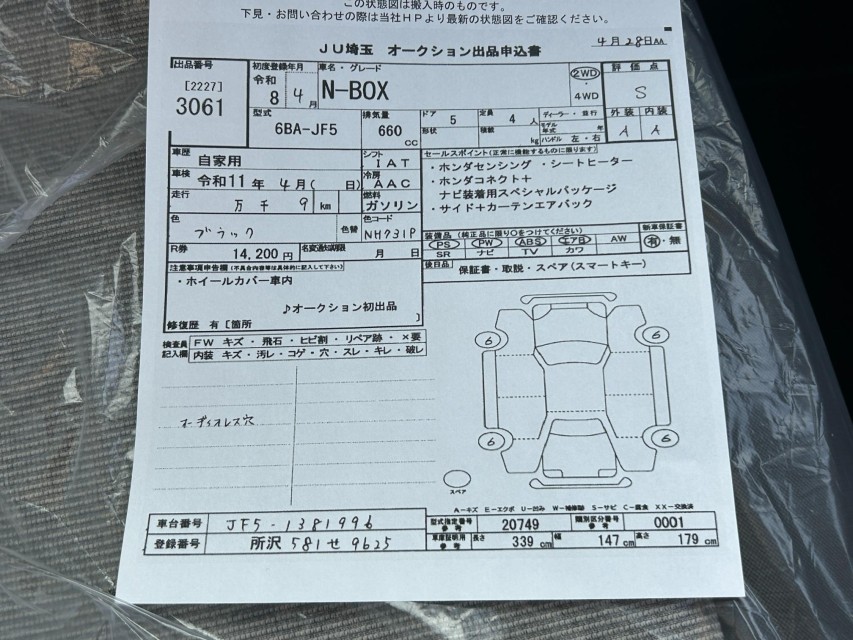 この状態図は搬入時のものです。
下見・お問い合わせの際は当社HPより最新の状態図をご確認ください。
JU埼玉 オークション出品申込書
4月28日AA
出品番号
[2227]
3061
初度登録年月
令和
8 4月
車名・グレード
N-BOX
2WD
・
4WD
評価点
S
外装 内装
A A
型式
6BA-JF5
排気量
660
cc
ドア 5
形状
定員 4 人
積載 kg
ディーラー・並行
モデル年式 年
ハンドル 左・右
車歴
自家用
シフト
IAT
車検
令和11年 4月( 日)
冷房
AAC
走行
万 千 9 km
燃料
ガソリン
色
ブラック
色替
色コード
NH731P
R券
14,200 円
名変通知期限
月 日
セールスポイント(正常に機能するものに限ります)
・ホンダセンシング ・シートヒーター
・ホンダコネクト+
ナビ装着用スペシャルパッケージ
・サイド+カーテンエアバック
装備品(純正品に限り○をつけてください)
PS PW ABS エアB AW
SR ナビ TV カワ
新車保証書
有・無
後日品
保証書・取説・スペア(スマートキー)
注意事項申告欄(不具合内容等は具体的に記入して下さい)
・ホイールカバー車内
♪オークション初出品
修復歴 有[箇所 ]
検査員
記入欄
FW キズ・飛石・ヒビ割・リペア跡・×要
内装 キズ・汚レ・コゲ・穴・スレ・キレ・破レ
オーディオレス穴
6
6
6
6
スペア
A-キズ E-エクボ U-凹み W-補修跡 S-サビ C-腐食 XX-交換済
車台番号
JF5-1381996
登録番号
所沢 581 せ 9625
型式指定番号
参考
20749
類別区分番号
参考
0001
車庫証明用
参考
長さ 339 cm
幅 147 cm
高さ 179 cm